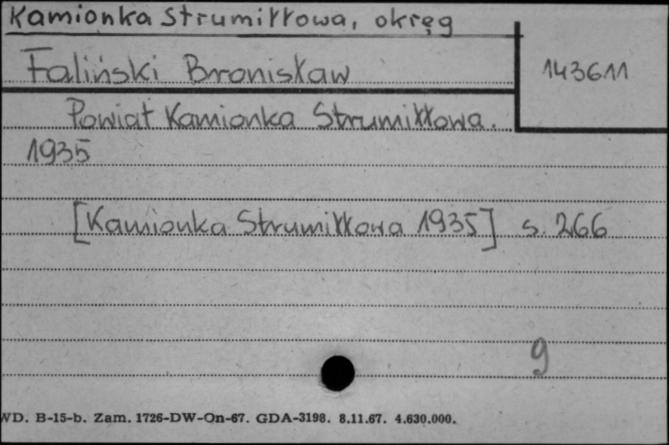 Kamionka Strumiłłowa, okręg
Faliński Bronisław
143611
Powiat Kamionka Strumiłłowa.
1935
[Kamionka Strumiłłowa 1935] s. 266
9
WD. B-15-b. Zam. 1726-DW-On-67. GDA-3198. 8.11.67. 4.630.000.